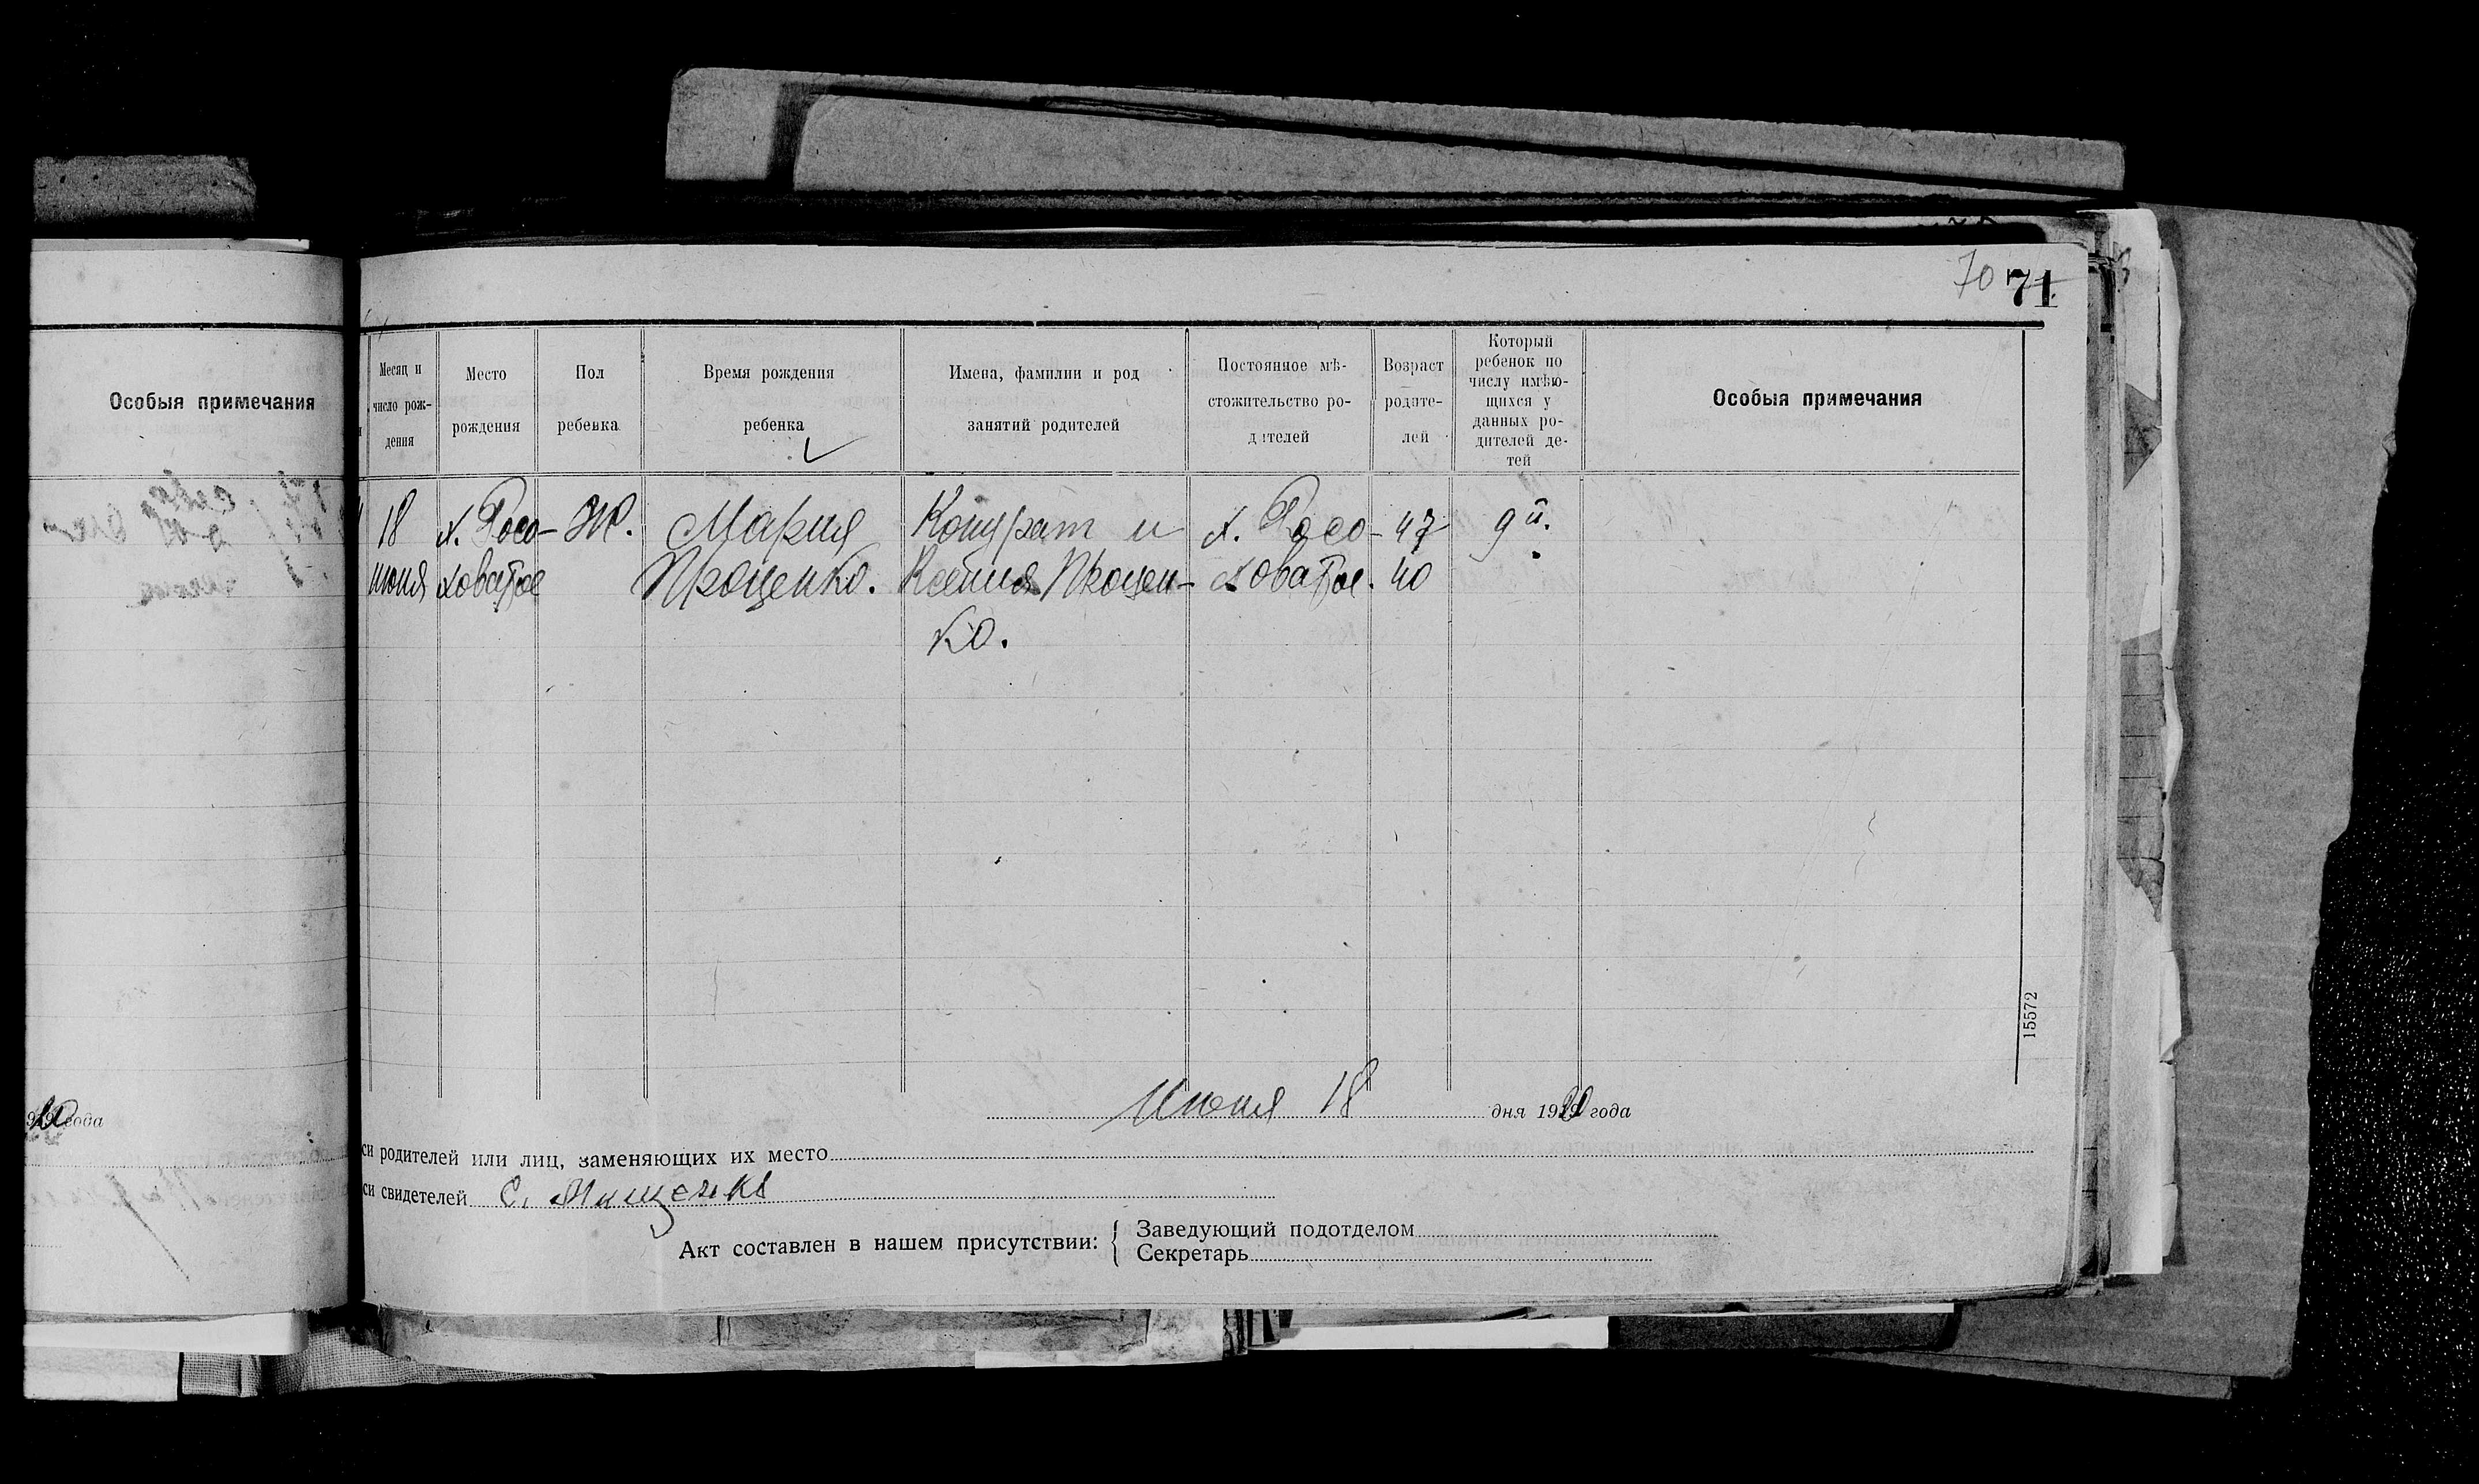 70 71
Особыя примечания
Месяц и число рождения
Место рождения
Пол ребенка
Время рождения ребенка
Имена, фамилии и род занятий родителей
Постоянное мѣстожительство родителей
Возраст родителей
Который ребенок по числу имѣющихся у данных родителей детей
Особыя примечания
18 х. Росо- Ж. Мария Кондрат и х. Росо- 47 9й.
июня ховатое Проценко. Ксения Процен- ховатое. 40
ко.
15572
Июня 18 дня 1920 года
года
си родителей или лиц, заменяющих их место
си свидетелей С. Мищенко
Акт составлен в нашем присутствии: { Заведующий подотделом
Секретарь